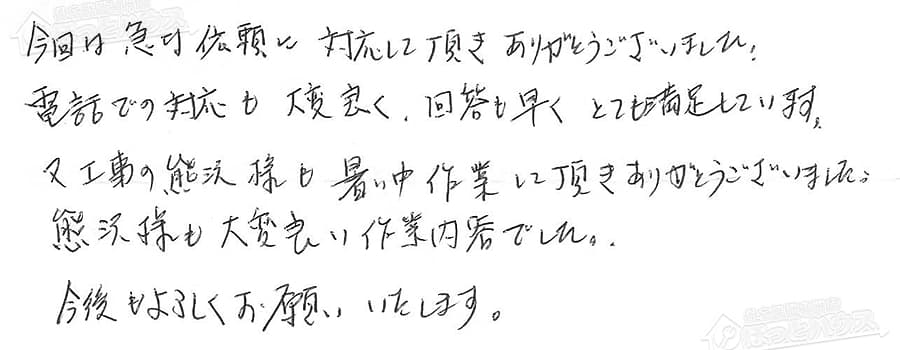 今回は急な依頼に対応して頂きありがとうございました。
電話での対応も大変良く、回答も早くとても満足しています。
又工事の熊沢様も暑い中作業して頂きありがとうございました。
熊沢様も大変良い作業内容でした。
今後もよろしくお願いいたします。